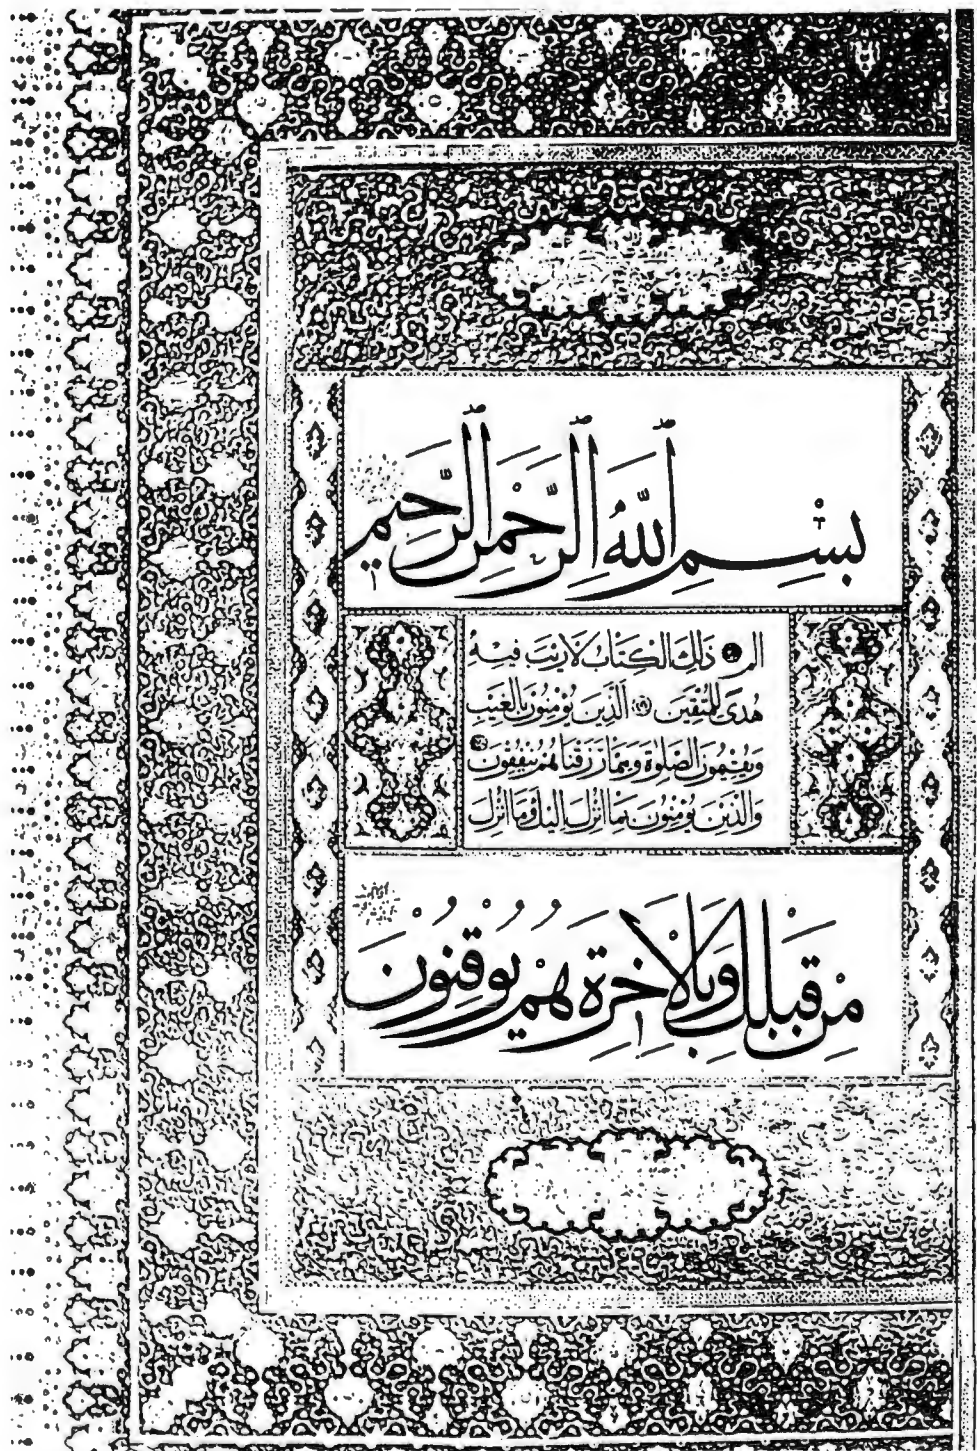 بِسْمِ ٱللَّهِ ٱلرَّحْمٰنِ ٱلرَّحِيمِ
الم ذَٰلِكَ الْكِتَابُ لَا رَيْبَ فِيهِ
هُدًى لِلْمُتَّقِينَ الَّذِينَ يُؤْمِنُونَ بِالْغَيْبِ
وَيُقِيمُونَ الصَّلٰوةَ وَمِمَّا رَزَقْنَاهُمْ يُنْفِقُونَ
وَالَّذِينَ يُؤْمِنُونَ بِمَا أُنْزِلَ إِلَيْكَ وَمَا أُنْزِلَ
مِنْ قَبْلِكَ وَبِالْآخِرَةِ هُمْ يُوقِنُونَ